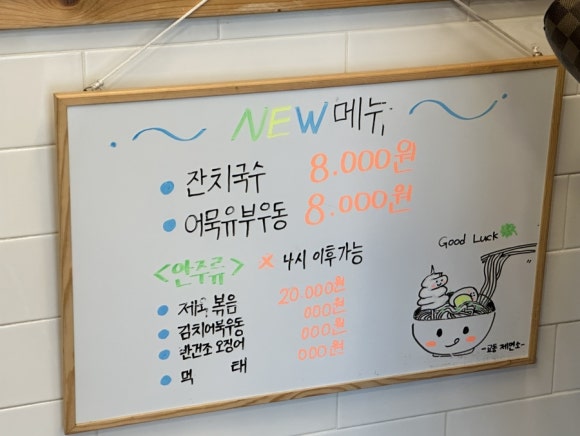 NEW 메뉴
잔치국수 8.000원
어묵유부우동 8.000원
<안주류> × 4시 이후가능
제육볶음 20.000원
김치어묵우동 000원
반건조 오징어 000원
먹 태 000원
Good Luck
제면소-